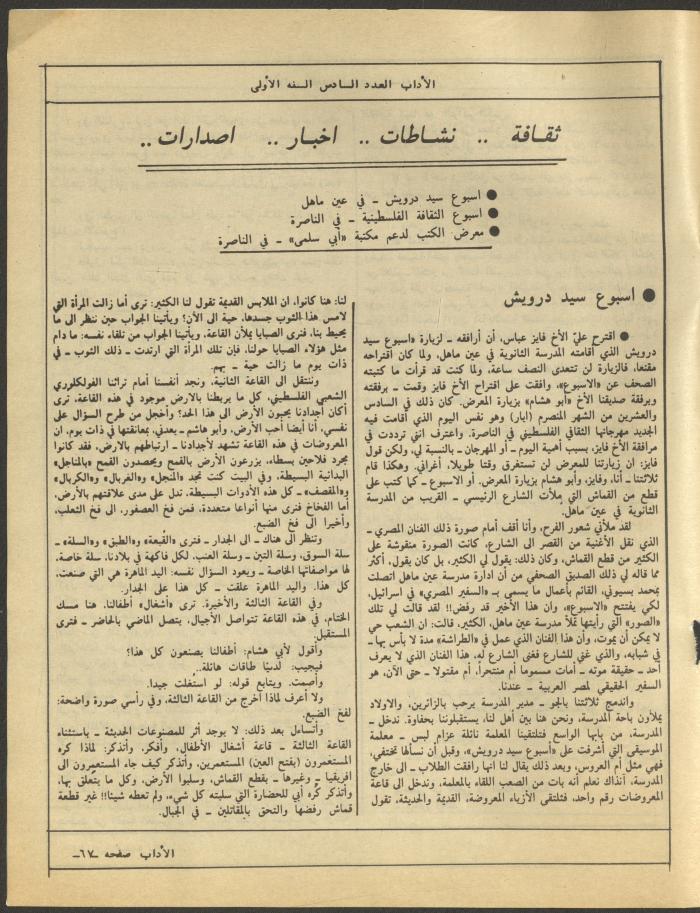 الآداب العدد السادس السنه الأولى
ثقافة .. نشاطات .. اخبار .. اصدارات ..
● اسبوع سيد درويش ـ في عين ماهل
● اسبوع الثقافة الفلسطينية ـ في الناصرة
● معرض الكتب لدعم مكتبة «أبي سلمى» ـ في الناصرة
● اسبوع سيد درويش
● اقترح عليّ الأخ فايز عباس، أن أرافقه ـ لزيارة «اسبوع سيد
درويش الذي أقامته المدرسة الثانوية في عين ماهل، ولما كان اقتراحه
مقنعا، فالزيارة لن تتعدى النصف ساعة، ولما كنت قد قرأت ما كتبته
الصحف عن «الاسبوع»، وافقت على اقتراح الأخ فايز وقمت ـ برفقته
وبرفقة صديقنا الأخ «أبو هشام» بزيارة المعرض. كان ذلك في السادس
والعشرين من الشهر المنصرم (ايار) وهو نفس اليوم الذي أقامت فيه
الجديد مهرجانها الثقافي الفلسطيني في الناصرة. واعترف انني ترددت في
مرافقة الأخ فايز، بسبب أهمية اليوم ـ أو المهرجان ـ بالنسبة لي، ولكن قول
فايز: ان زيارتنا للمعرض لن تستغرق وقتا طويلا، أغراني. وهكذا قام
ثلاثتنا ـ أنا، وفايز، وأبو هشام بزيارة المعرض. أو الاسبوع ـ كما كتب على
قطع من القماش التي ملأت الشارع الرئيسي ـ القريب من المدرسة
الثانوية في عين ماهل.
لقد ملأني شعور الفرح، وأنا أقف أمام صورة ذلك الفنان المصري ـ
الذي نقل الأغنية من القصر الى الشارع، كانت الصورة منقوشة على
الكثير من قطع القماش، وكان ذلك: يقول لي الكثير، بل كان يقول، أكثر
مما قاله لي ذلك الصديق الصحفي من أن ادارة مدرسة عين ماهل اتصلت
بمحمد بسيوني، القائم بأعمال ما يسمى بـ «السفير المصري» في اسرائيل،
لكي يفتتح «الاسبوع»، وان هذا الأخير قد رفض!! لقد قالت لي تلك
«الصور» التي رأيتها تملأ مدرسة عين ماهل، الكثير، قالت: ان الشعب حي
لا يمكن أن يموت، وأن هذا الفنان الذي عمل في «الطراشة» مدة لا بأس بها ـ
في شبابه، والذي غنى للشارع فغنى الشارع له، هذا الفنان الذي لا يعرف
أحد ـ حقيقة موته ـ أمات مسموما أم منتحراً، أم مقتولا ـ حتى الآن، هو
السفير الحقيقي لمصر العربية ـ عندنا.
واندمج ثلاثتنا بالجو ـ مدير المدرسة يرحب بالزائرين، والاولاد
يملأون باحة المدرسة، ونحن هنا بين أهل لنا، يستقبلوننا بحفاوة. ندخل ـ
المدرسة، من بابها الواسع فتلتقينا المعلمة نائلة عزام لبس ـ معلمة
الموسيقى التي أشرفت على «أسبوع سيد درويش»، وقبل أن نسألها تختفي،
فهي مثل أم العروس، وبعد ذلك يقال لنا انها رافقت الطلاب ـ الى خارج
المدرسة، آنذاك نعلم أنه بات من الصعب اللقاء بالمعلمة، وندخل الى قاعة
المعروضات رقم واحد، فنلتقي الأزياء المعروضة، القديمة والحديثة، تقول
لنا: هنا كانوا، ان الملابس القديمة تقول لنا الكثير: ترى أما زالت المرأة التي
لامس هذا الثوب جسدها، حية الى الآن؟ ويأتينا الجواب حين ننظر الى ما
يحيط بنا، فنرى الصبايا يملأن القاعة، ويأتينا الجواب من تلقاء نفسه: ما دام
مثل هؤلاء الصبايا حولنا، فإن تلك المرأة التي ارتدت ـ ذلك الثوب ـ في
ذات يوم ما زالت حية ـ بهم.
وننتقل الى القاعة الثانية، ونجد أنفسنا أمام تراثنا الفولكلوري
الشعبي الفلسطيني، كل ما يربطنا بالارض موجود في هذه القاعة، ترى
أكان أجدادنا يحبون الأرض الى هذا الحد؟ وأخجل من طرح السؤال على
نفسي، أنا أيضا أحب الأرض، وأبو هاشم ـ يعدني، بمعانقتها في ذات يوم، ان
المعروضات في هذه القاعة تشهد لأجدادنا ـ ارتباطهم بالارض، فقد كانوا
مجرد فلاحين بسطاء، يزرعون الأرض بالقمح ويحصدون القمح «بالمناجل»
البدائية البسيطة، وفي البيت كنت تجد «المنجل» و«الغربال» و«الكربال»
و«المقصف» ـ كل هذه الأدوات البسيطة، تدل على مدى علاقتهم بالأرض،
أما الفخاخ فترى منها أنواعا متعددة، فمن فخ العصفور، الى فخ الثعلب،
وأخيرا الى فخ الضبع.
وتنظر الى هناك ـ الى الجدار ـ فترى «القبعة» و«الطبق» و«السلة» ـ
سلة السوق، وسلة التين ـ وسلة العنب، لكل فاكهة في بلادنا، سلة خاصة،
لها مواصفاتها الخاصة ـ ويعود السؤال نفسه: اليد الماهرة هي التي صنعت،
كل هذا. واليد الماهرة علقت ـ كل هذا على الجدار.
وفي القاعة الثالثة والأخيرة، ترى «أشغال» أطفالنا. هنا مسك
الختام، في هذه القاعة تتواصل الأجيال، يتصل الماضي بالحاضر ـ فترى
المستقبل.
وأقول لأبي هشام: أطفالنا يصنعون كل هذا؟
فيجيب: لدينا طاقات هائلة..
وأصمت. ويتابع قوله: لو استُغلت جيدا.
ولا أعرف لماذا أخرج من القاعة الثالثة، وفي رأسي صورة واضحة:
لفخ الضبع.
وأتساءل بعد ذلك: لا يوجد أثر للمصنوعات الحديثة ـ باستثناء
القاعة الثالثة ـ قاعة أشغال الأطفال، وأفكر، وأتذكر: لماذا كره
المستعمرون (بفتح العين) المستعمرين، وأتذكر كيف جاء المستعمرون الى
افريقيا ـ وغيرها ـ بقطع القماش، وسلبوا الأرض، وكل ما يتعلق بها،
وأتذكر كُره أبي للحضارة التي سلبته كل شيء، ولم تعطه شيئا!! غير قطعة
قماش رفضها والتحق بالمقاتلين ـ في الجبال.
الآداب صفحه ـ٦٧ـ